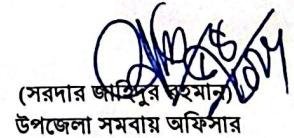 (সরদার জাহিদুর রহমান)
উপজেলা সমবায় অফিসার